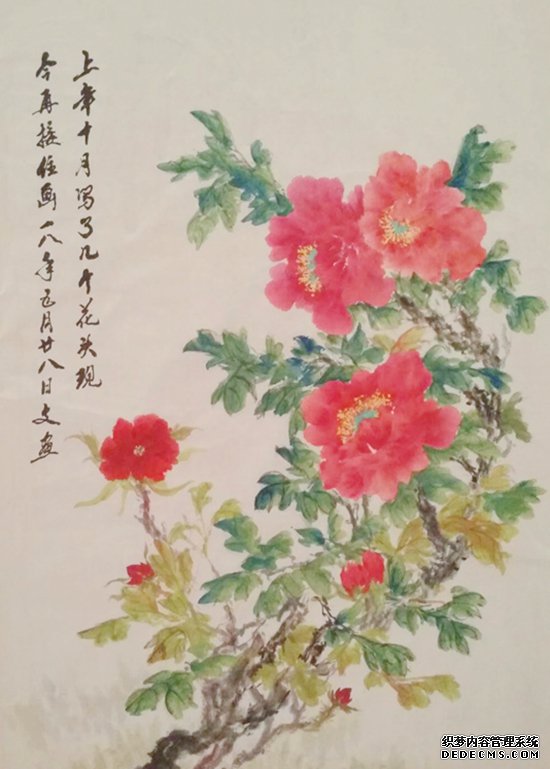 上年十月写了几个花头现
今再接任画一八年五月廿八日文画
织梦内容管理系统
DEDECMS.COM